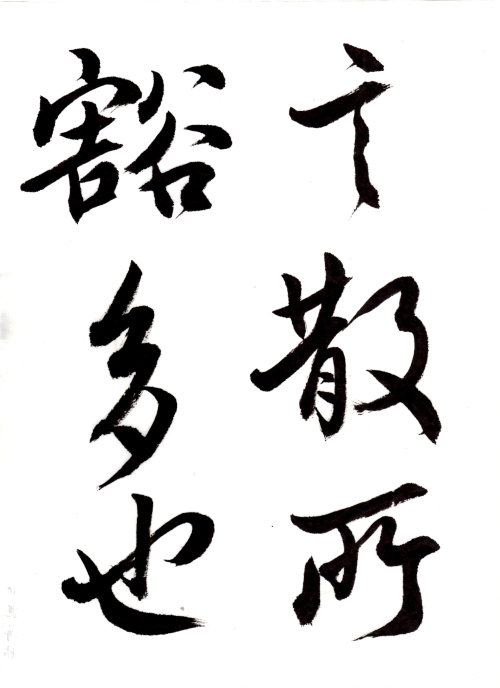 言散所
豁多也